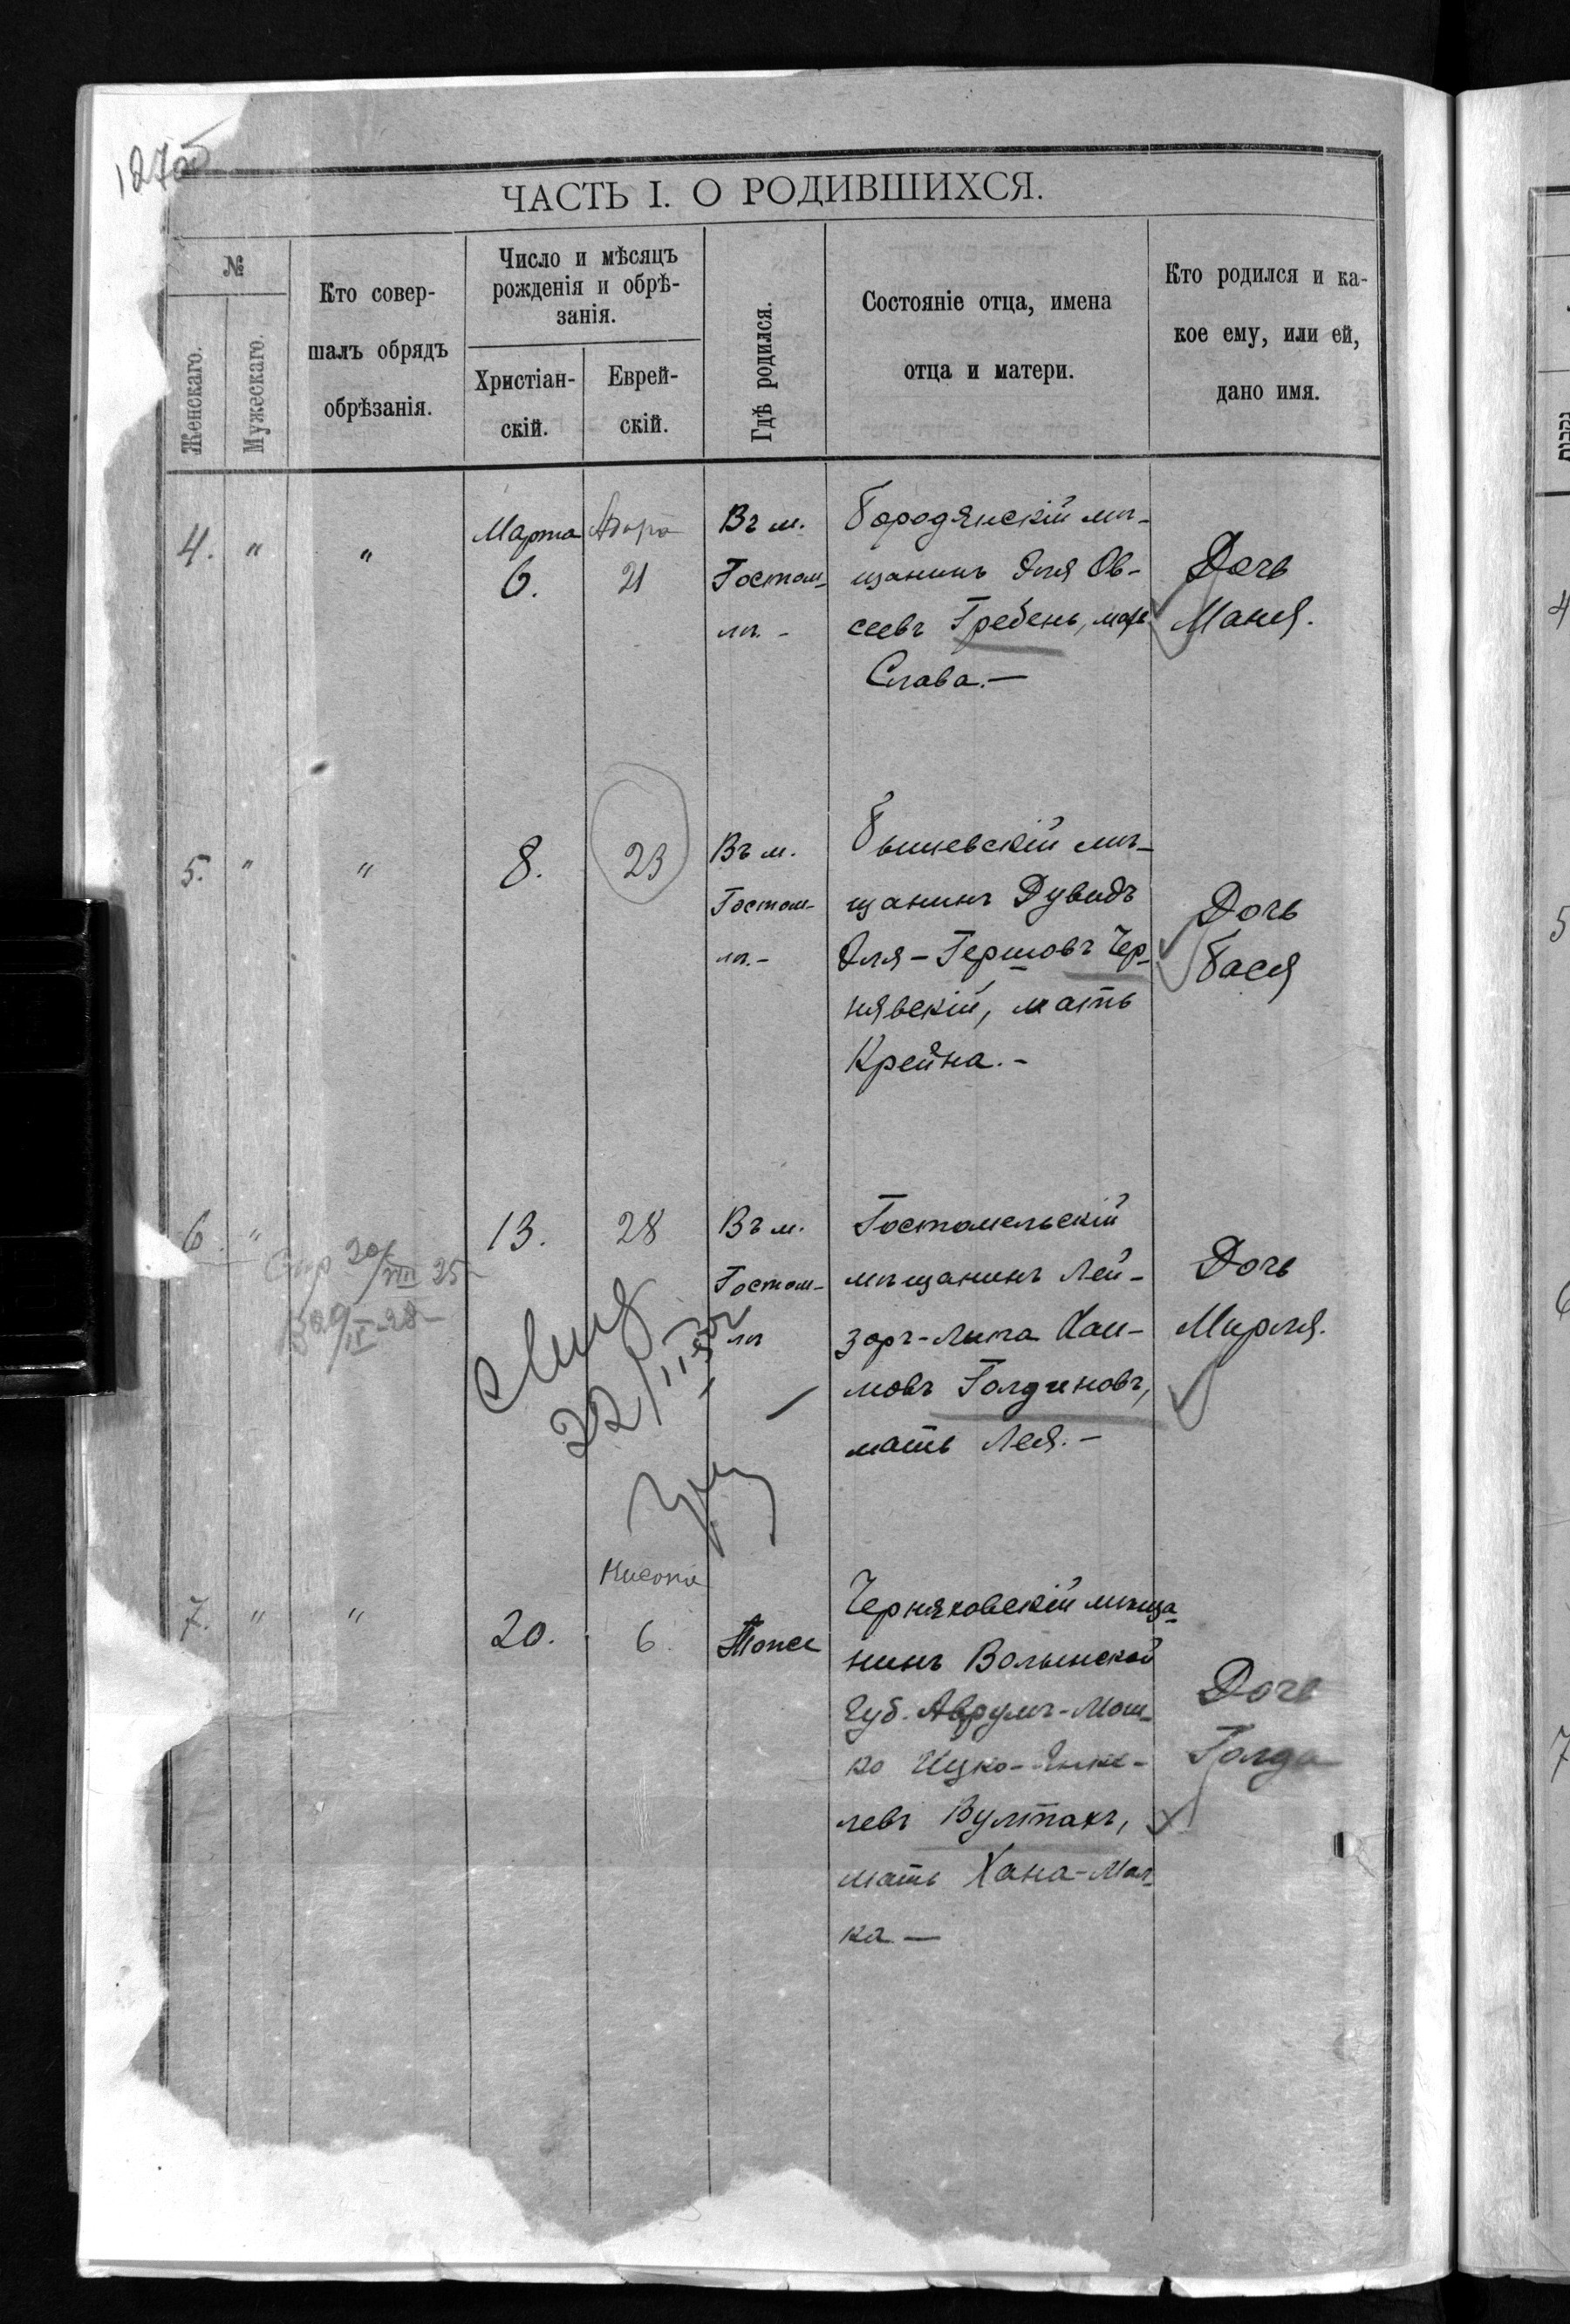 127об
ЧАСТЬ I. О РОДИВШИХСЯ.
№
Женскаго.
Мужескаго.
Кто совер-
шалъ обрядъ
обрѣзанія.
Число и мѣсяцъ
рожденія и обрѣ-
занія.
Христіан-
скій.
Еврей-
скій.
Гдѣ родился.
Состояніе отца, имена
отца и матери.
Кто родился и ка-
кое ему, или ей,
дано имя.
4. " "
Марта
6.
Адара
21
Въ м.
Гостом-
лѣ. -
Бородянскій мѣ-
щанинъ Эля Ов-
сеевъ Гребень, мать
Слава. —
Дочь
Маня.
5. " "
8.
23
Въ м.
Гостом-
лѣ. -
Бышевскій мѣ-
щанинъ Дувидъ
Эля-Гершовъ Чер-
нявскій, мать
Крейна. -
Дочь
Бася
6. "
13.
28
Въ м.
Гостом-
лѣ
Гостомельскій
мѣщанинъ Лей-
зоръ-Липа Хаи-
мовъ Голдиновъ,
мать Лея. -
Дочь
Мирля.
20/VIII 25
29/IX 28
22/II
7. " "
20.
Нисона
6.
Тоже
Черняховскій мѣща-
нинъ Волынской
губ. Аврумъ-Мош-
ко Ицко-Янке-
левъ Вултахъ,
мать Хана-Мал-
ка —
Дочь
Голда
4
5
6
7